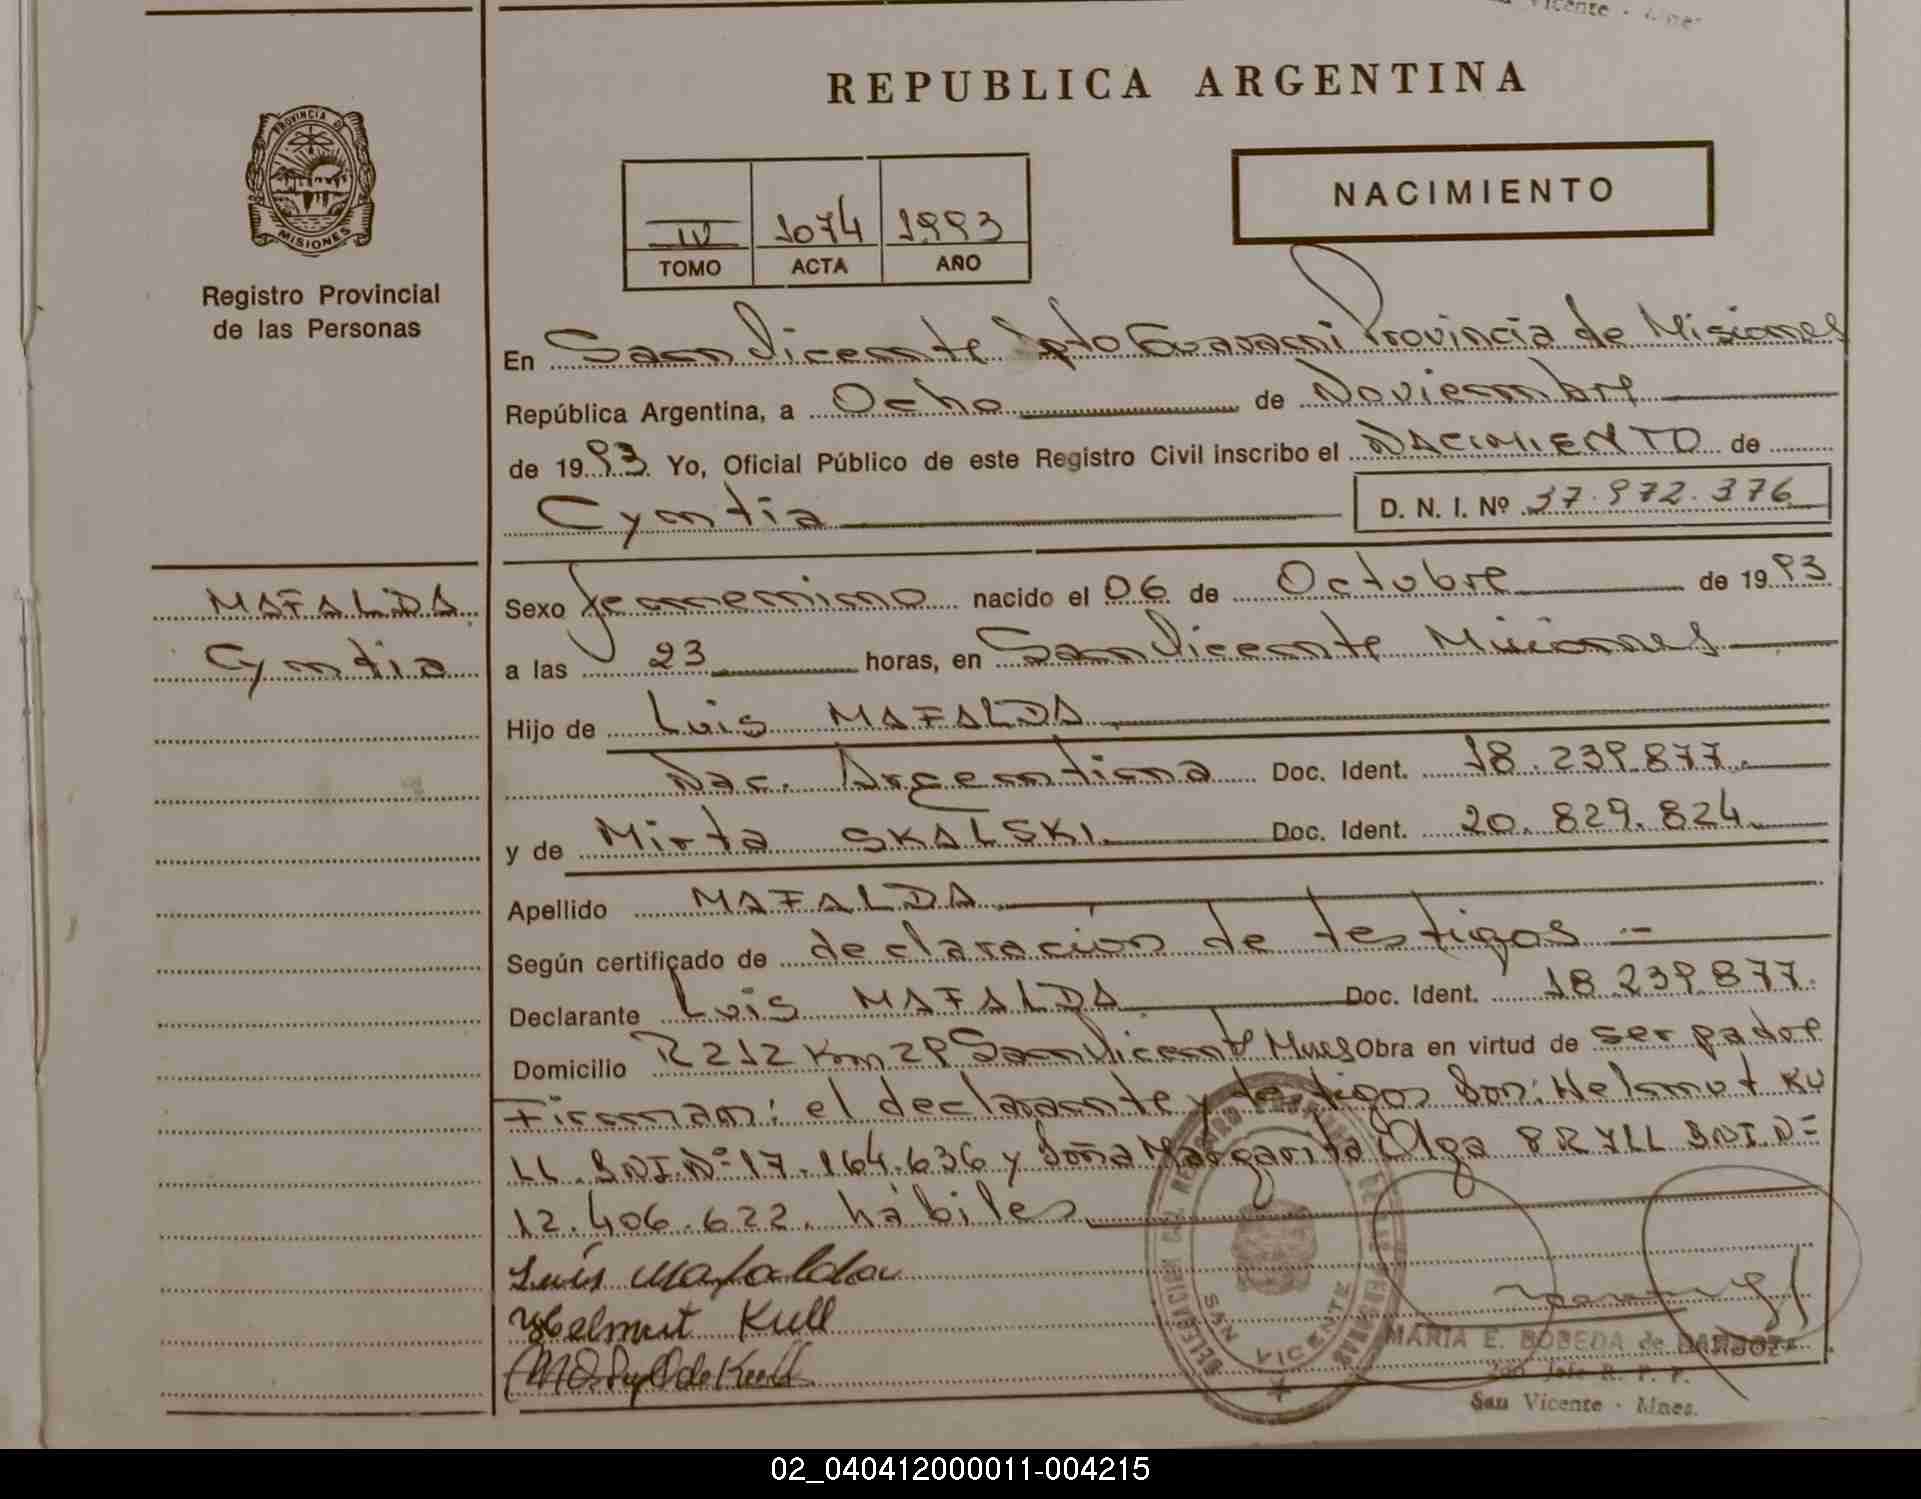 Vicente - Mnes
REPUBLICA ARGENTINA
PROVINCIA DE
MISIONES
Registro Provincial
de las Personas
NACIMIENTO
IV 1074 1993
TOMO ACTA AÑO
En San Vicente Dpto Guarani Provincia de Misiones
República Argentina, a Ocho de Noviembre
de 1993 Yo, Oficial Público de este Registro Civil inscribo el NACIMIENTO de
Cyntia D. N. I. Nº 37.972.376
MAFALDA
Cyntia
Sexo femenino nacido el 06 de Octubre de 1993
a las 23 horas, en San Vicente Misiones
Hijo de Luis MAFALDA
Nac. Argentina Doc. Ident. 18.239.877.
y de Mirta SKALSKI Doc. Ident. 20.829.824
Apellido MAFALDA
Según certificado de declaración de testigos
Declarante Luis MAFALDA Doc. Ident. 18.239.877.
Domicilio R 212 Km 29 San Vicente Mnes Obra en virtud de ser padre
Firman: el declarante y testigos Don: Helmut KU
LL DNI.Nº 17.164.636 y Doña Margarita Olga PRYLL DNI.Nº
12.406.622. hábiles
Luis Mafalda
Helmut Kull
DELEGACION DEL REGISTRO
SAN VICENTE
MARIA E. BOBEDA de BARBOZA
Jefe R. P. P.
San Vicente - Mnes.
02_040412000011-004215